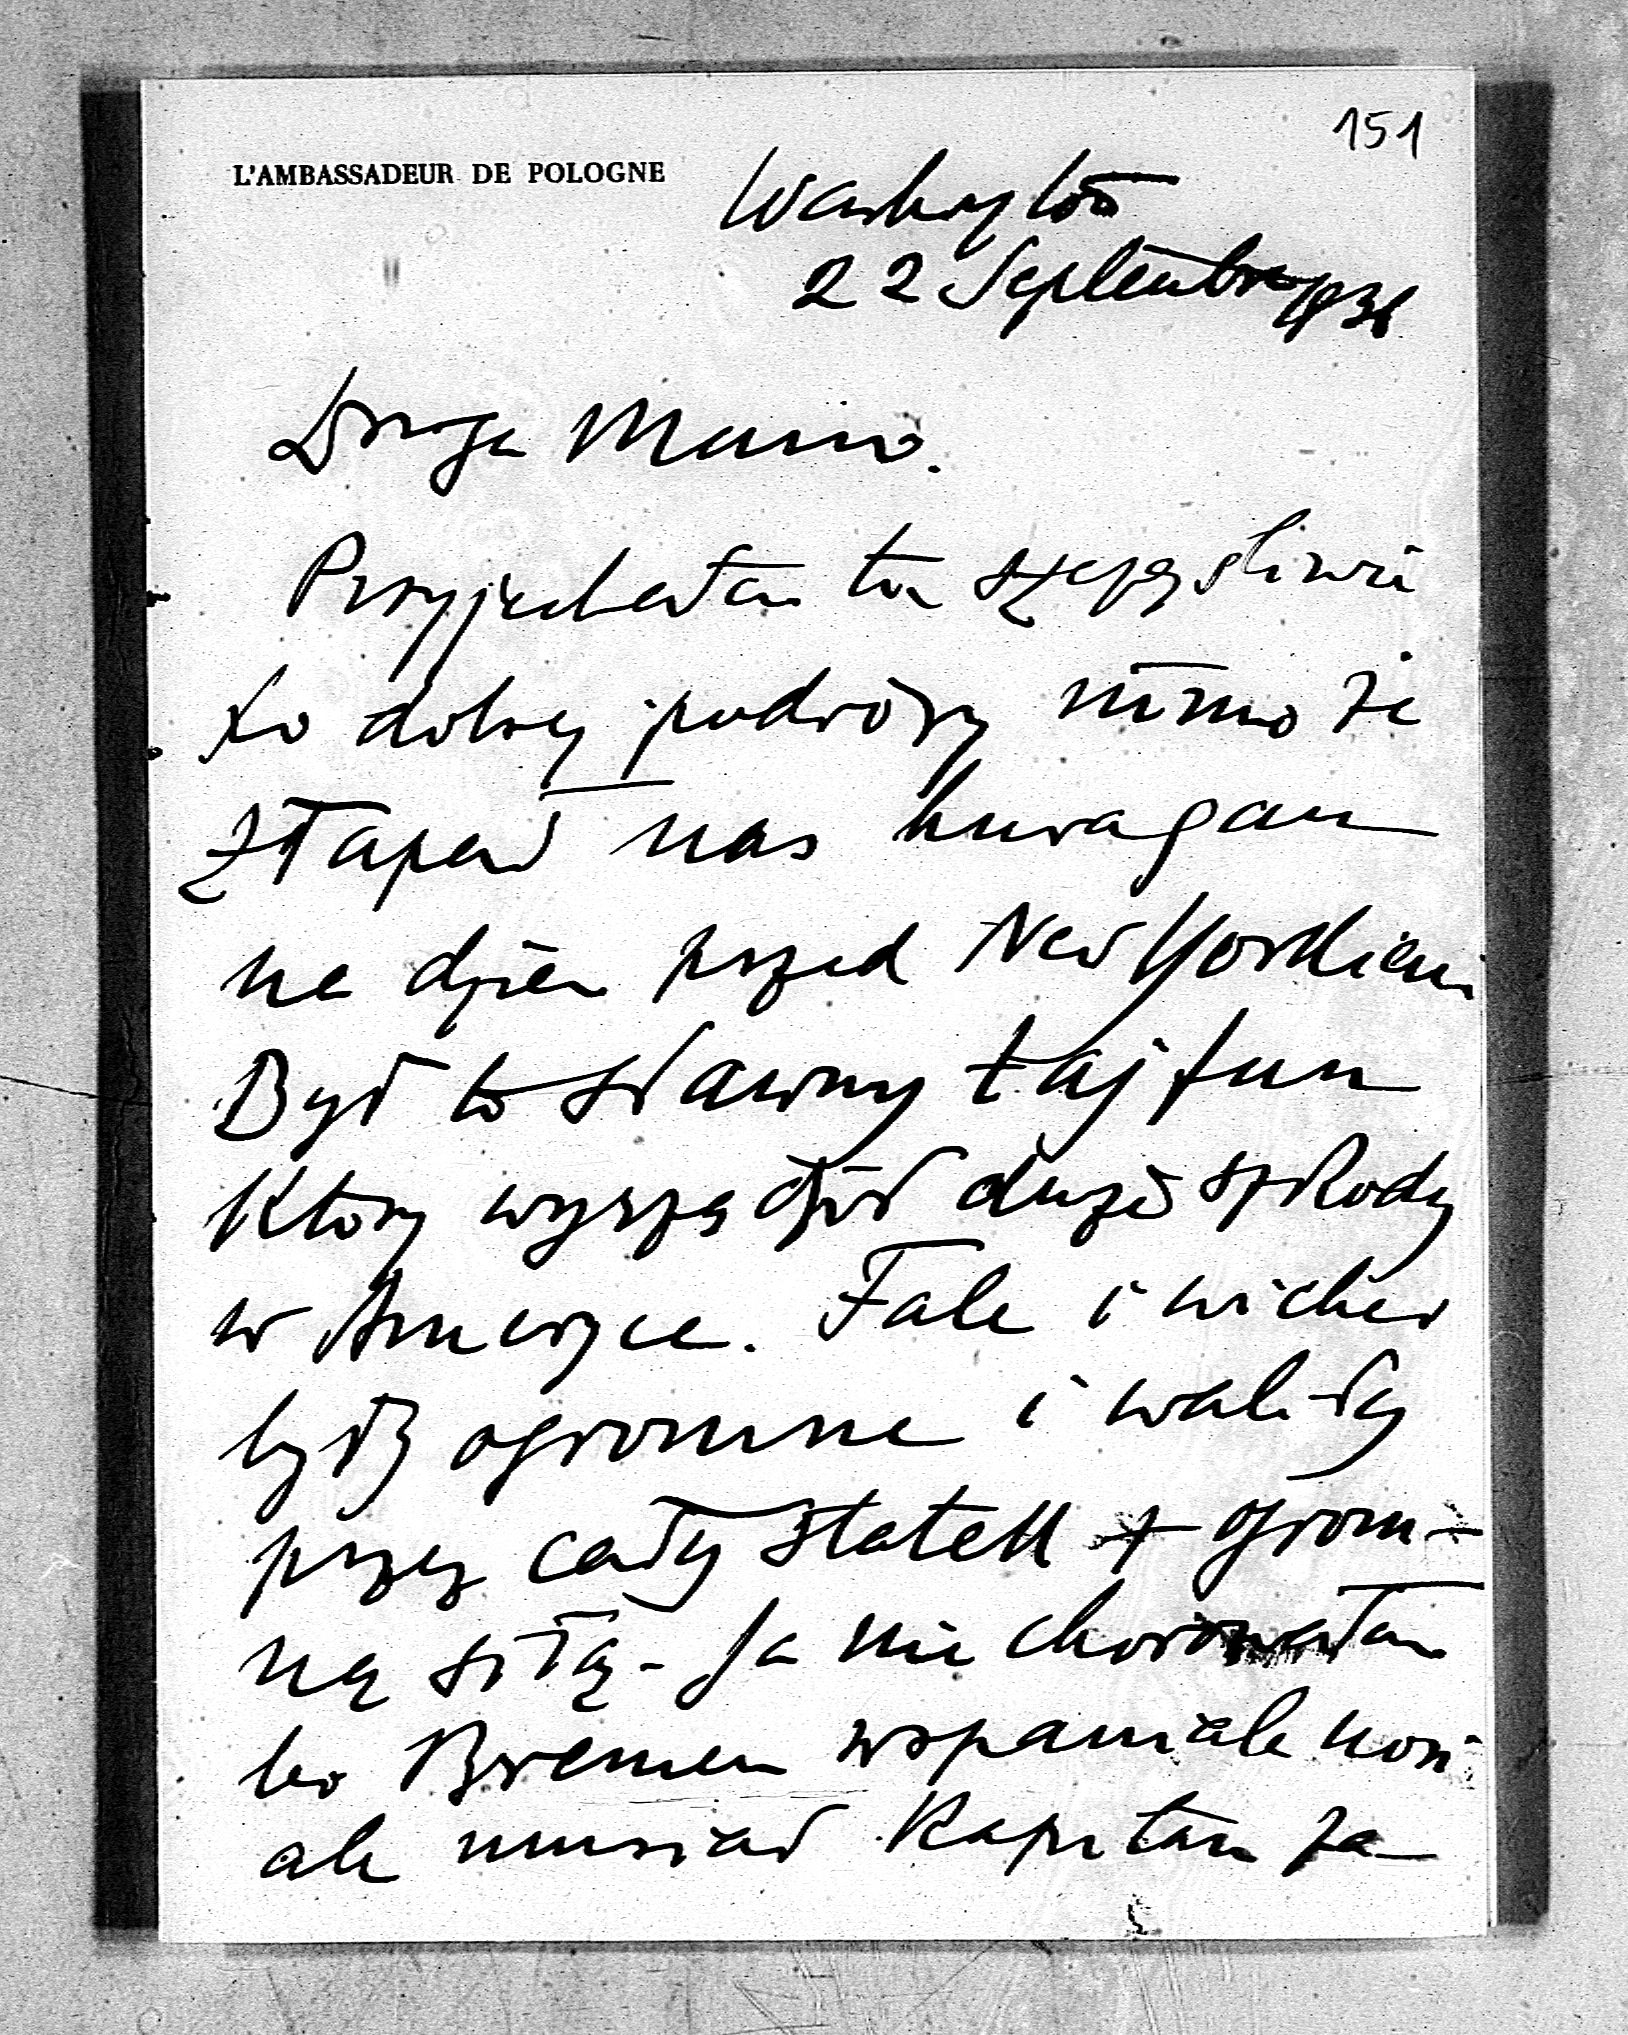 151
L'AMBASSADEUR DE POLOGNE
Washington
22 Septembre 1936
Droga Maniu.
Przyjechałam tu szczęśliwie
po dobrej podróży mimo że
złapał nas huragan
na dzień przed New Yorkiem
Był to sławny tajfun
który wyrządził duże szkody
w Ameryce. Fale i wicher
były ogromne i waliły
przez cały statek z ogrom-
ną siłą - Ja nie chorowałam
bo Bremen wspaniale nosi
ale musiał Kapitan za